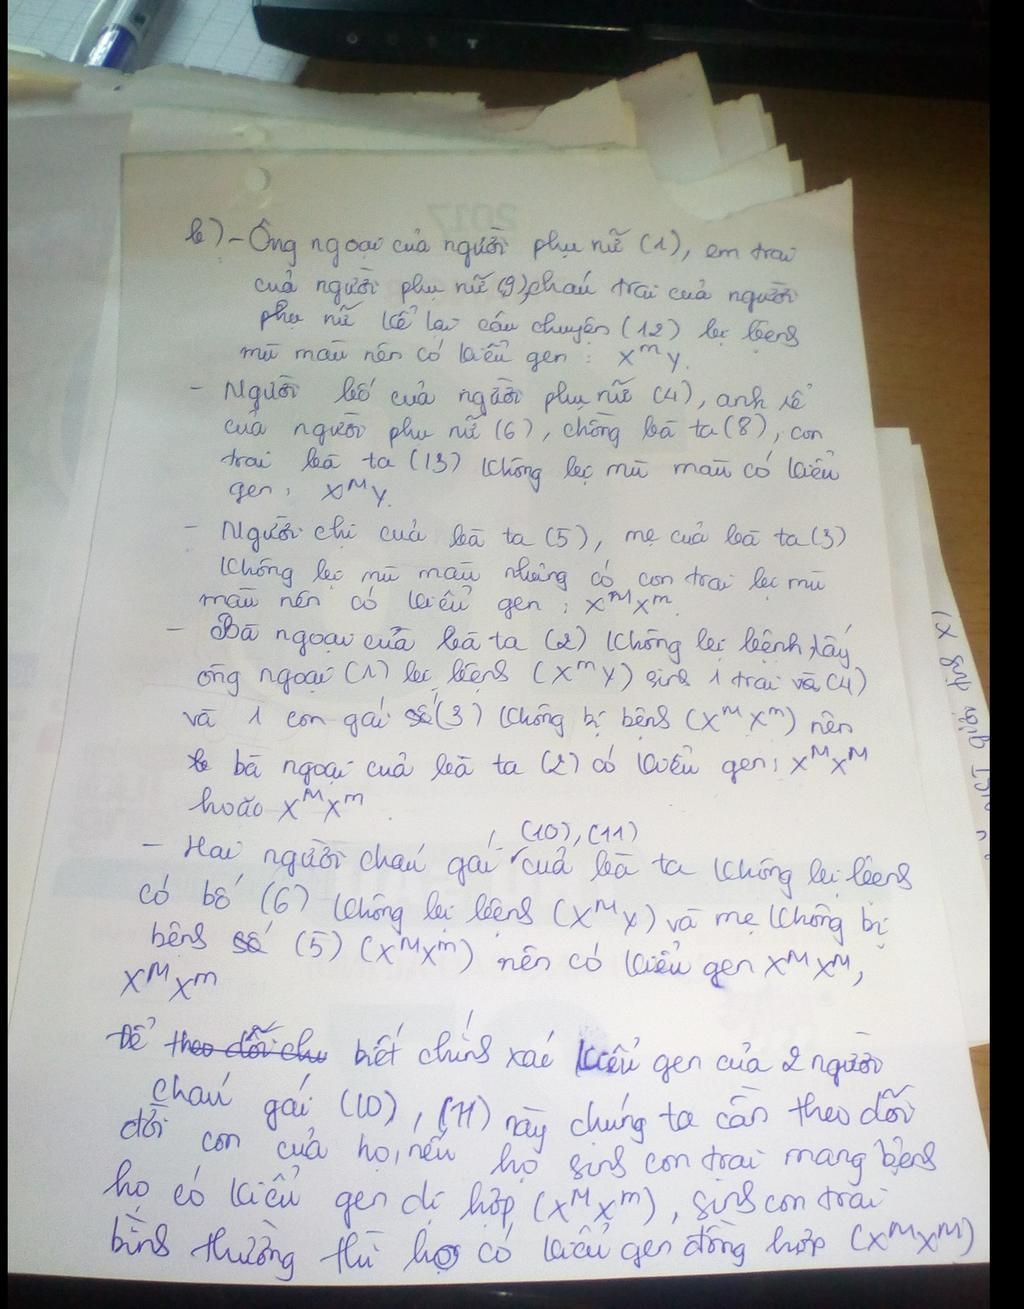 b) - Ông ngoại của người phụ nữ (1), em trai
của người phụ nữ (9), cháu trai của người
phụ nữ kể lại câu chuyện (12) bị bệnh
mù màu nên có kiểu gen : X^m Y.
- Người bố của người phụ nữ (4), anh rể
của người phụ nữ (6), chồng bà ta (8), con
trai bà ta (13) không bị mù màu có kiểu
gen : X^M Y.
- Người chị của bà ta (5), mẹ của bà ta (3)
không bị mù màu nhưng có con trai bị mù
màu nên có kiểu gen : X^M X^m.
- Bà ngoại của bà ta (2) không bị bệnh lấy
ông ngoại (1) bị bệnh (X^m Y) sinh 1 trai và (4)
và 1 con gái số (3) không bị bệnh (X^M X^m) nên
bà ngoại của bà ta (2) có kiểu gen : X^M X^M
hoặc X^M X^m
- Hai người cháu gái (10), (11) của bà ta không bị bệnh
có bố (6) không bị bệnh (X^M Y) và mẹ không bị
bệnh số (5) (X^M X^m) nên có kiểu gen X^M X^M,
X^M X^m
Để theo dõi cho biết chính xác kiểu gen của 2 người
cháu gái (10), (11) này chúng ta cần theo dõi
đời con của họ, nếu họ sinh con trai mang bệnh
họ có kiểu gen dị hợp (X^M X^m), sinh con trai
bình thường thì họ có kiểu gen đồng hợp (X^M X^M)
2017